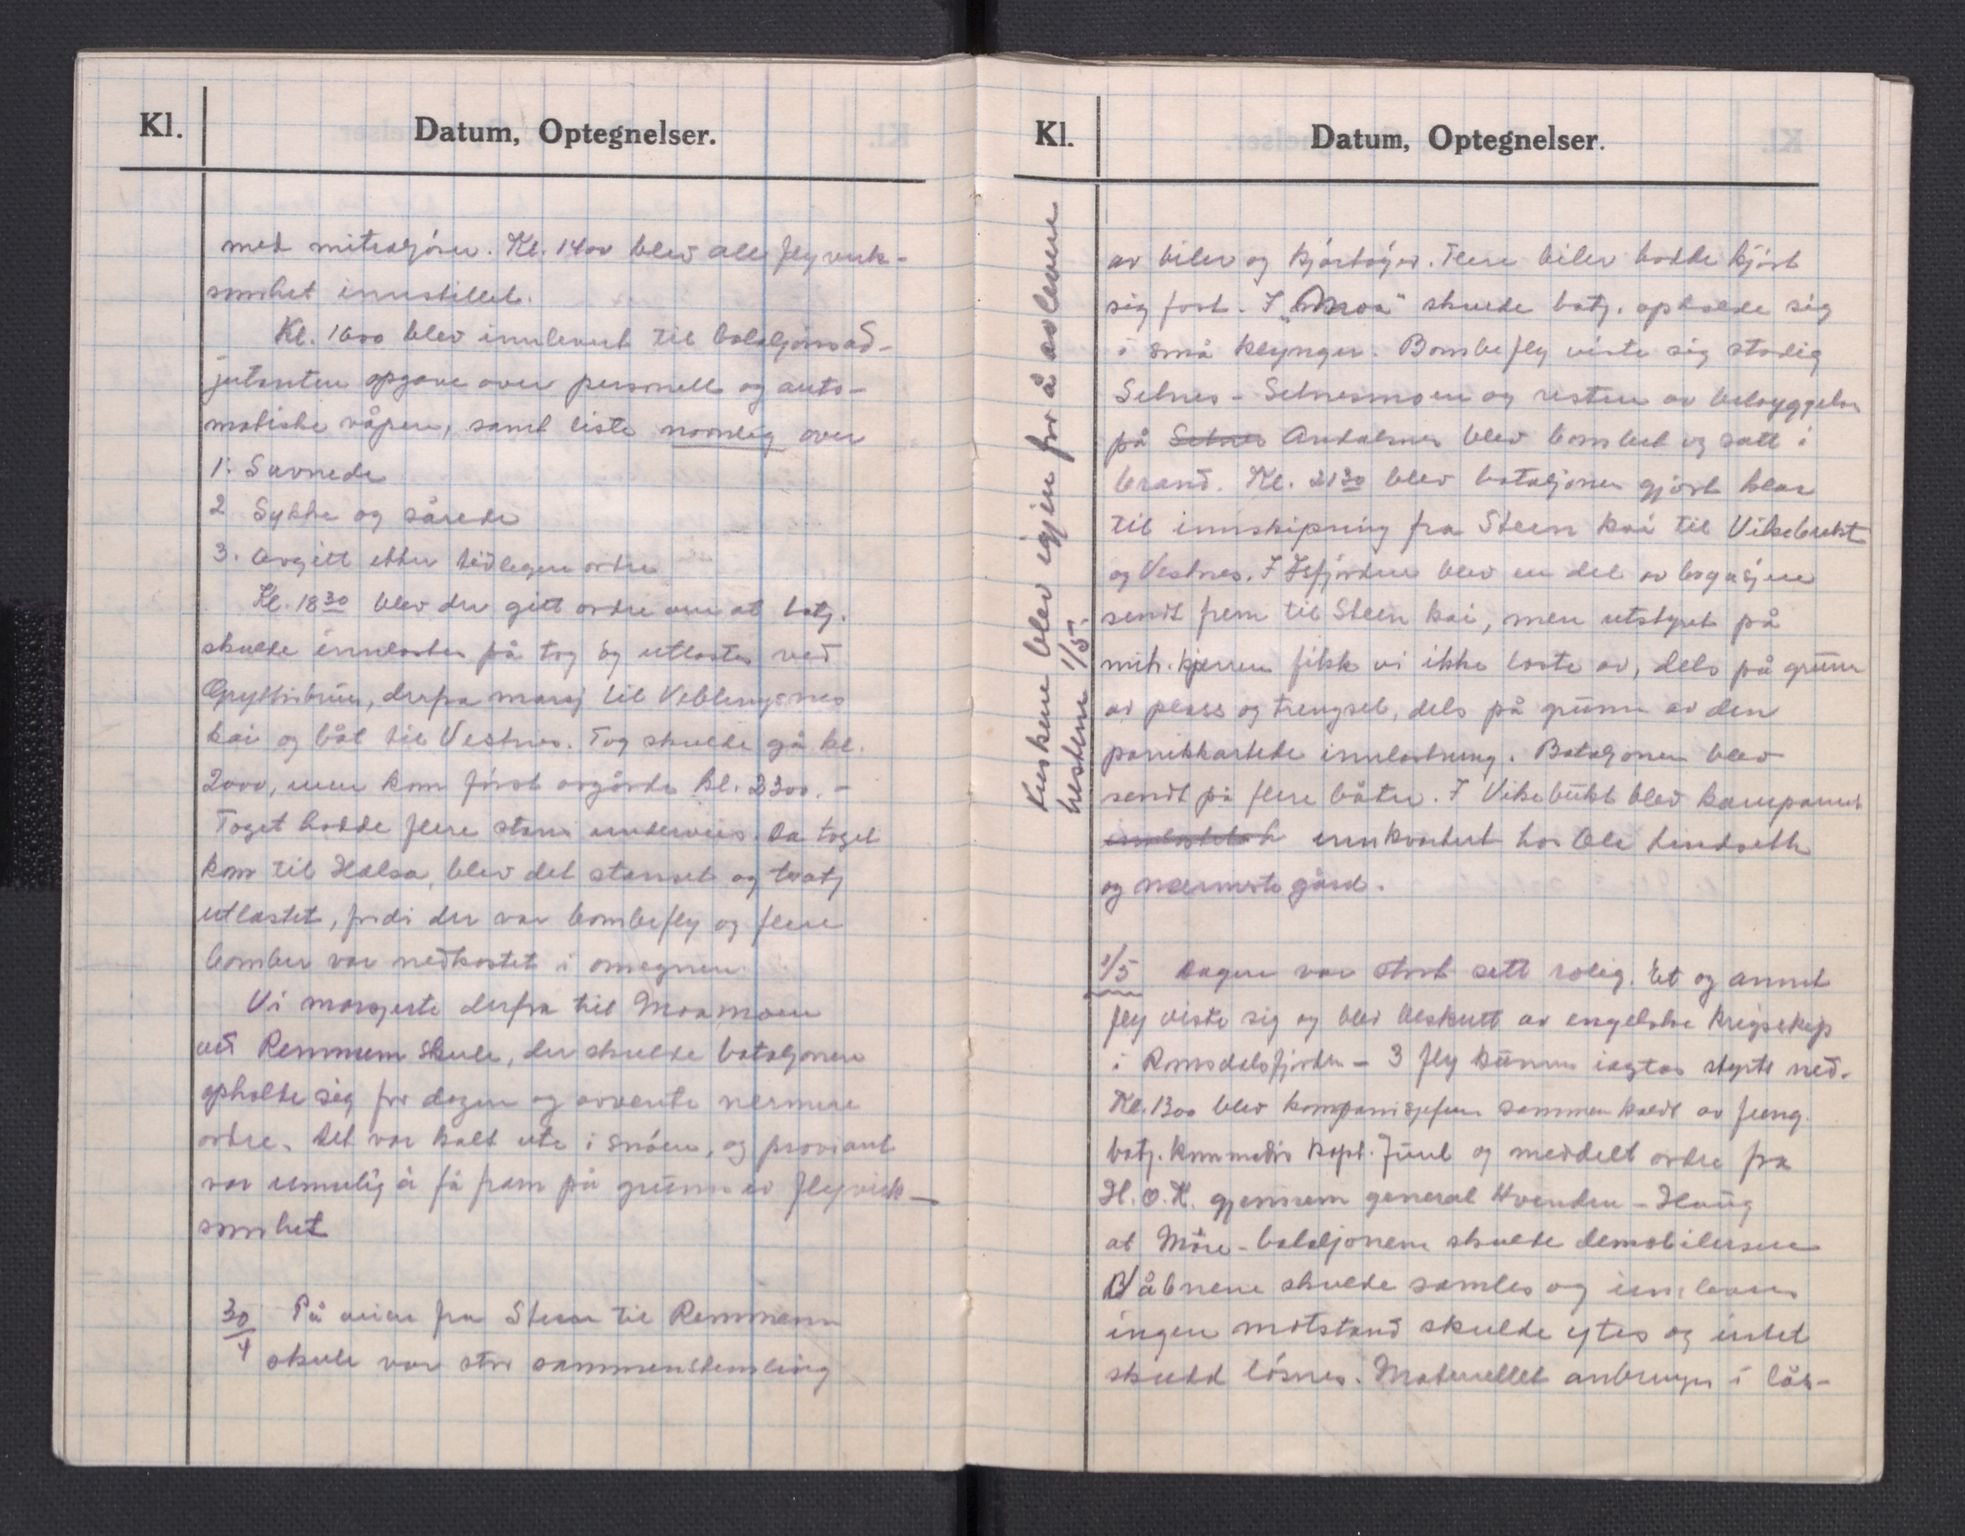 Kl. Datum, Optegnelser.
med mitraljöser. Kl. 1400 blev all flyverk-
somhet innstillet.
Kl. 1600 blev innlevert til bataljonsad-
jutanten opgave over personell og auto-
matiske våpen, samt liste navnlig over
1. Savnede
2 Sykke og sårede
3. Avgitt etter tidligere ordre
Kl. 18 30 blev der gitt ordre om at batj.
skulde innlastes på tog og utlastes ved
derfra marsj til Veblungsnes
kai og båt til Vestnes. Tog skulde gå kl.
2000, men kom först avgårde kl. 2300. -
Toget hadde flere stans underveis. Da toget
kom til Halsa, blev det stanset og batj
utlastet, fordi der var bombefly og flere
bomber var nedkastet i omegnen.
Vi marsjerte derfra til Moamoen
ved Remmem skule, der skulde bataljonen
opholde sig for dagen og avvente nermere
ordre. Det var kalt ute i snöen, og proviant
var umulig å få fram på grunn av flyverk-
somhet
30/4 På veien fra Steen til Remmem
skule var stor sammenstemling
Kl. Datum, Optegnelser.
Kuskene blev igjen for å avlevere
hestene 1/5.
av biler og kjörtöyer. Flere biler hadde kjört
sig fast. I "Moa" skulde batj. opholde sig
i små klynger. Bombefly viste sig stadig
Setnes - Setnesmoen og resten av bebyggelsen
på Setnes Åndalsnes blev bombet og satt i
brand. Kl. 21 30 blev bataljonen gjort klar
til innskipning fra Steen kai til Vikebukt
og Vestnes. I Isfjorden blev en del av bagasjen
sendt frem til Steen kai, men utstyret på
mitr. kjerren fikk vi ikke laste av, dels på grunn
av plass og trengsel, dels på grunn av den
panikkartede innlastning. Bataljonen blev
sendt på flere båter. I Vikebukt blev kompaniet
innkvartert hos Ole
og nærmeste gård.
1/5 Dagen var stort sett rolig. Et og annet
fly viste sig og blev beskutt av engelske krigsskip
i Romsdalsfjorden - 3 fly kunne iagtas styrte ned.
Kl. 1300 blev kompanisjefene sammenkaldt av fung.
batj. kommandör kapt. Juul og meddelt ordre fra
H.O.K. gjennem general Hvinden-Haug
at Möre-bataljonene skulde demobiliseres
Våbnene skulde samles og innleveres
ingen motstand skulde ytes og intet
skudd lösnes. Materiellet anbringes i lås-